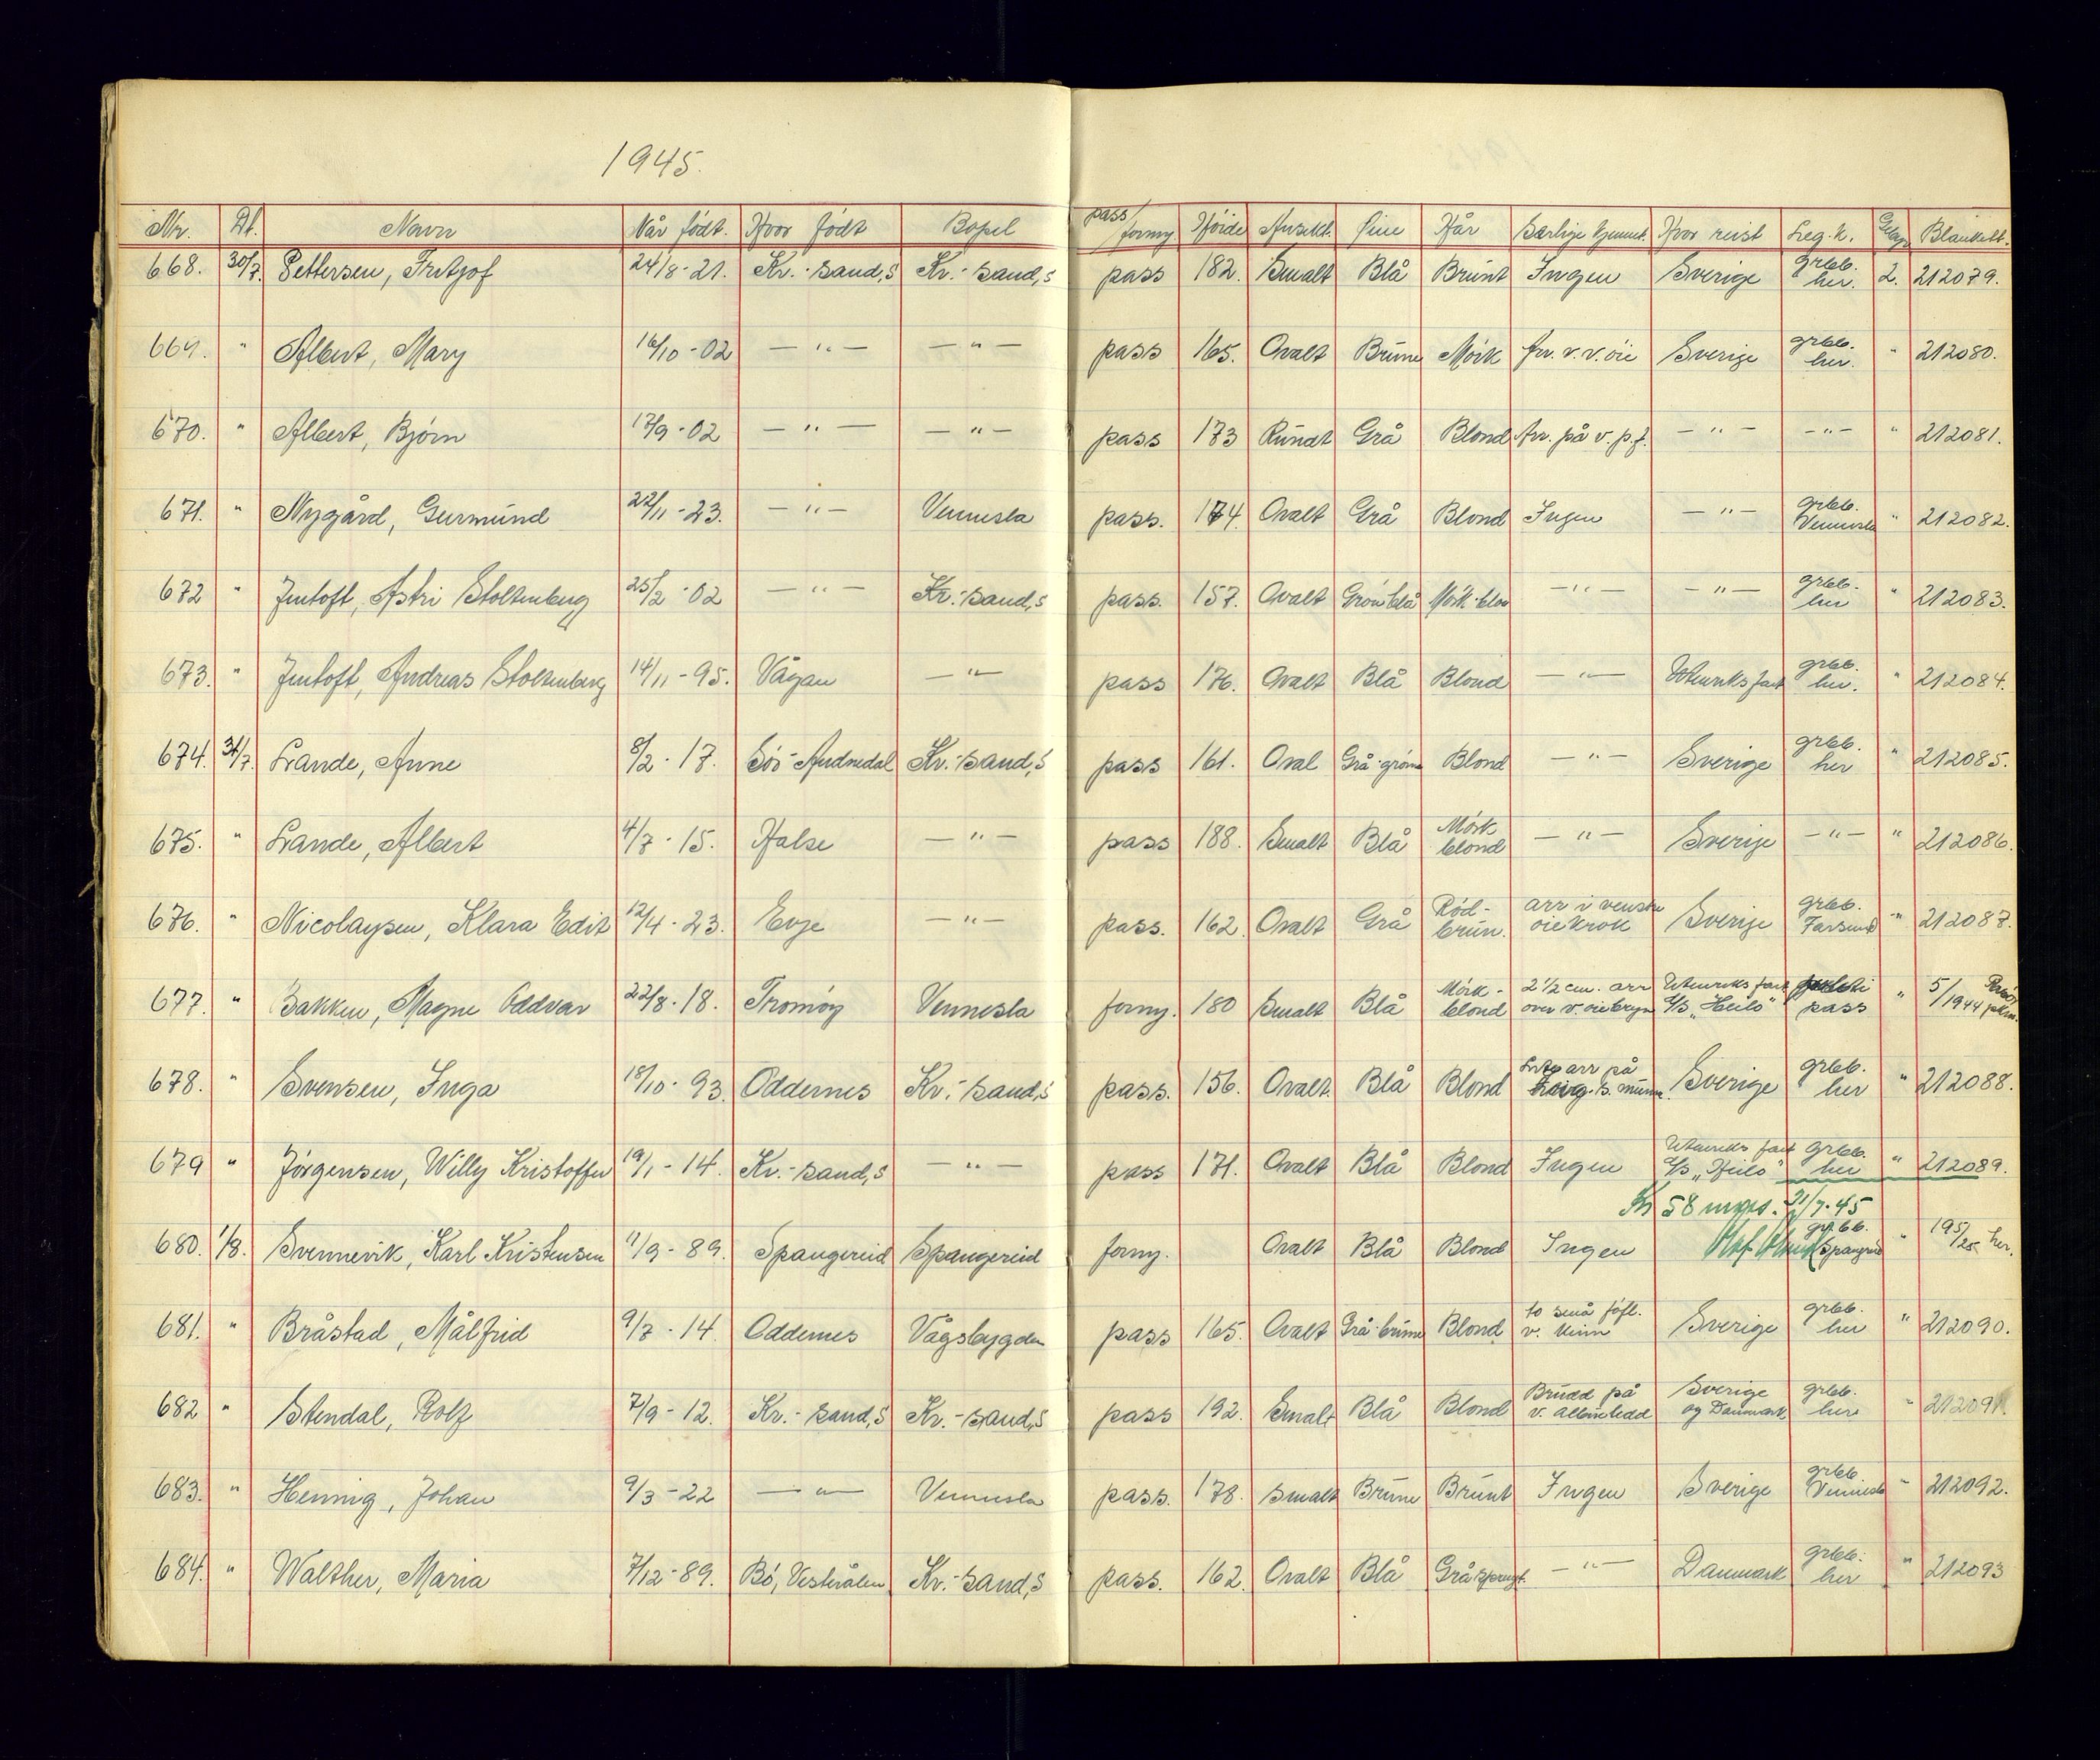 1945.
Nr. Dt. Navn Når födt. Hvor födt Bopel pass/forny Höide Ansikt. Öine Hår Særlige kjennet. Hvor reist Leg.k. Gebyr Blankett.
668. 30/7. Pettersen, Fritjof 24/8-21. Kr.-sand,S Kr.-sand,S pass 182. Smalt Blå Brunt Ingen Sverige grbb. her. 2. 212079.
669. " Albert, Mary 16/10-02 —"— —"— pass 165. Ovalt Brune Mörk Arr. v. v. öie Sverige grbb. her. " 212080.
670. " Albert, Bjørn 17/9-02 —"— —"— pass 173 Rundt Grå Blond Arr. på v. p.f. —"— —"— " 212081.
671. " Nygård, Gurmund 22/11-23. —"— Vennesla pass. 174. Ovalt Grå Blond Ingen —"— grbb. Vennesla " 212082.
672 " Jentoft, Astri Stoltenberg 25/2-02 —"— Kr.-sand,S pass. 157. Ovalt Grön blå Mörk blon —"— —"— grbb. her " 212083.
673. " Jentoft, Andreas Stoltenberg 14/11-95. Vågan —"— pass 176. Ovalt Blå Blond —"— Utenriks fart grbb. her. " 212084.
674. 31/7. Lande, Anne 8/2-17. Sör-Audnedal Kr.-sand,S pass 161. Oval Grå-gröne Blond —"— Sverige grbb. her " 212085.
675. " Lande, Albert 4/7-15. Halse —"— pass 188. Smalt Blå Mörk blond —"— Sverige —"— " 212086.
676. " Nicolaysen, Klara Edit 12/4-23. Evje —"— pass. 162. Ovalt Grå Röd-brun. arr i venstre öiekrok Sverige grbb. Farsund " 212087.
677. " Bakken, Magne Oddvar 22/8-18. Tromöy Vennesla forny. 180 Smalt Blå Mörk-blond 2 1/2 cm. arr over v. öiebryn Utenriks fart S/S „Heilo" pass " 5/1944
678. " Svensen, Inga 18/10-93. Oddernes Kr.-sand,S pass. 156. Ovalt. Blå Blond Lite arr på munn. Sverige grbb. her " 212088.
679 " Jörgensen, Willy Kristoffer 19/1-14. Kr.-sand,S —"— pass 171. Ovalt Blå Blond Ingen Utenriks fart S/S „Heilo" grbb. her " 212089.
Kr 58 31/7-45
680. 1/8. Svennevik, Karl Kristensen 11/9-89. Spangereid Spangereid forny. Ovalt Blå Blond Ingen grbb. Spangreid " 195/25 her.
681. " Bråstad, Målfrid 9/7-14. Oddernes Vågsbygden pass 165. Ovalt Grå-brune Blond to små föfl. v. kinn Sverige grbb. her " 212090.
682 " Stendal, Rolf 7/9-12. Kr.-sand,S Kr.-sand,S pass 192. Smalt Blå Blond Brudd på v. albueledd Sverige og Danmark grbb. her " 212091.
683. " Hennig, Johan 9/3-22 —"— Vennesla pass. 178. smalt Brune Brunt Ingen Sverige grbb. Vennesla " 212092.
684. " Walther, Maria 7/12-89. Bö, Vesterålen Kr.-sand,S pass. 162. Ovalt Blå Gråsprengt. —"— Danmark grbb. her " 212093